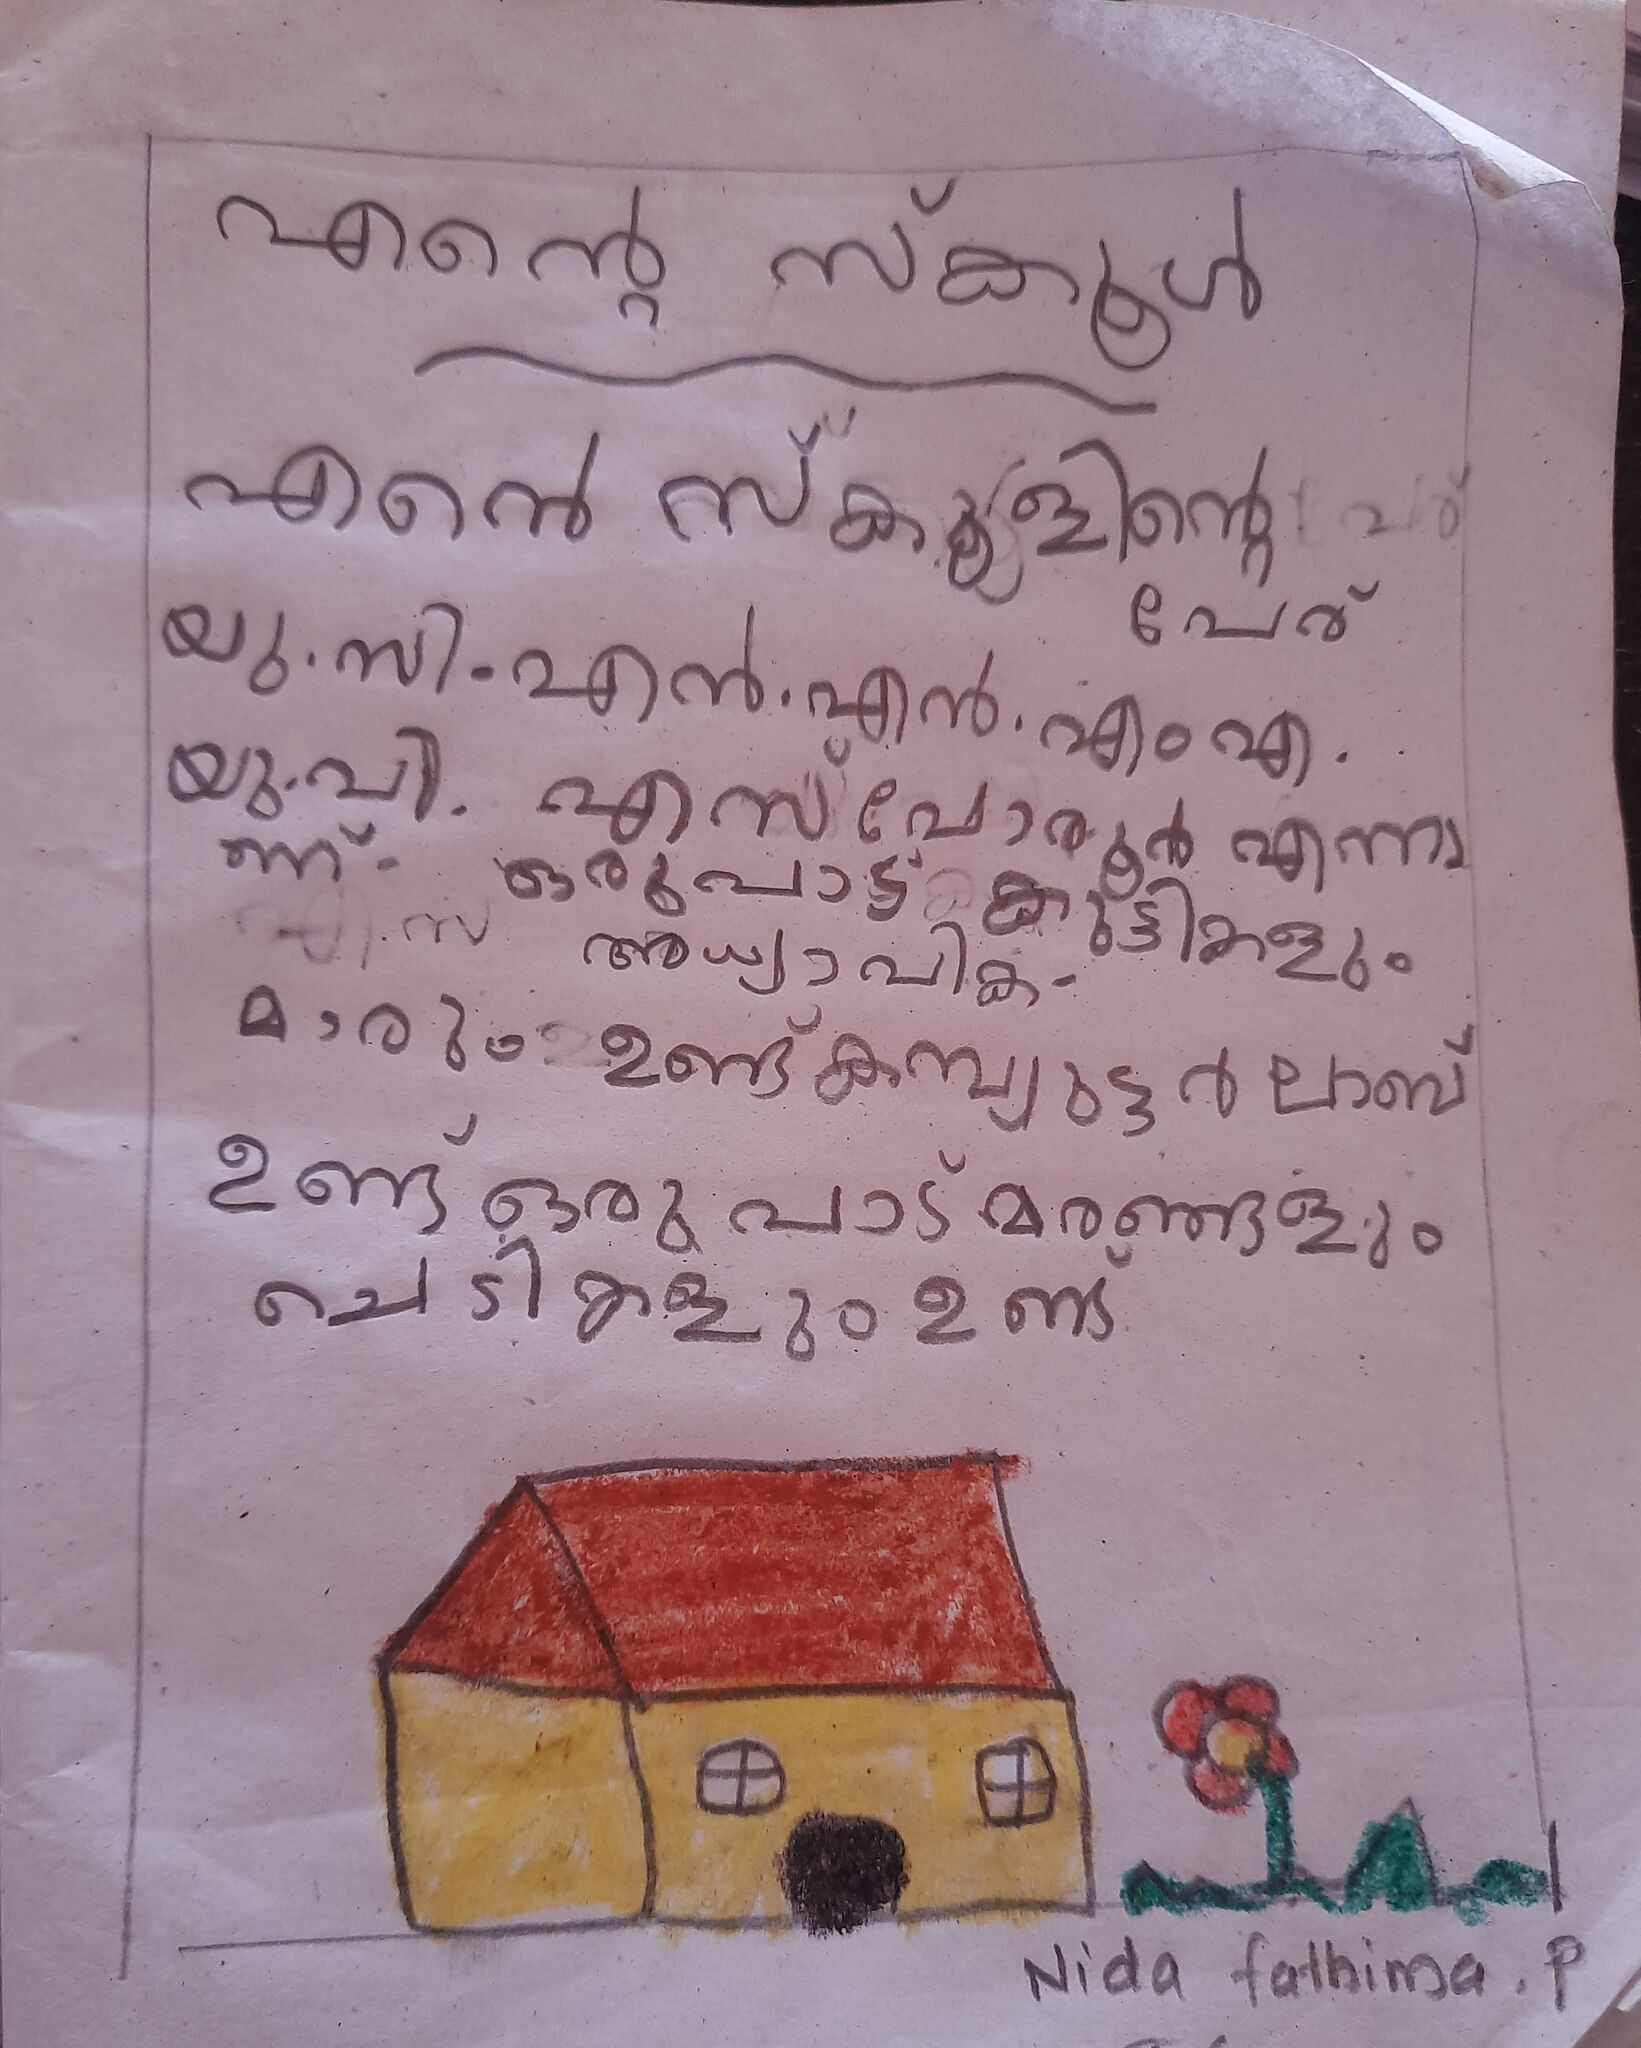 എന്റെ സ്കൂൾ
എൻെ സ്കൂളിന്റെ
പേര്
യു.സി.എൻ.എൻ.എംഎ.
യു.പി. എസ് പോരൂർ എന്നാ
ണ്. ഒരുപാട് കുട്ടികളും
അധ്യാപിക-
മാരും ഉണ്ട് കമ്പ്യുട്ടർ ലാബ്
ഉണ്ട് ഒരു പാട് മരങ്ങളും
ചെടികളും ഉണ്ട്
Nida fathima . P